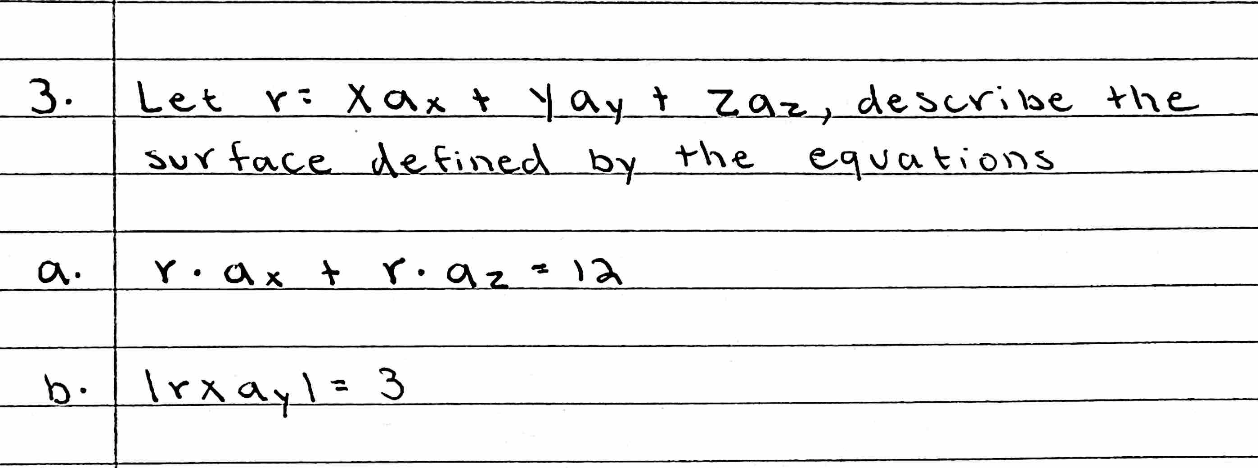 3. Let r = xax + yay + zaz, describe the
surface defined by the equations
a. r · ax + r · az = 12
b. |r x ay| = 3